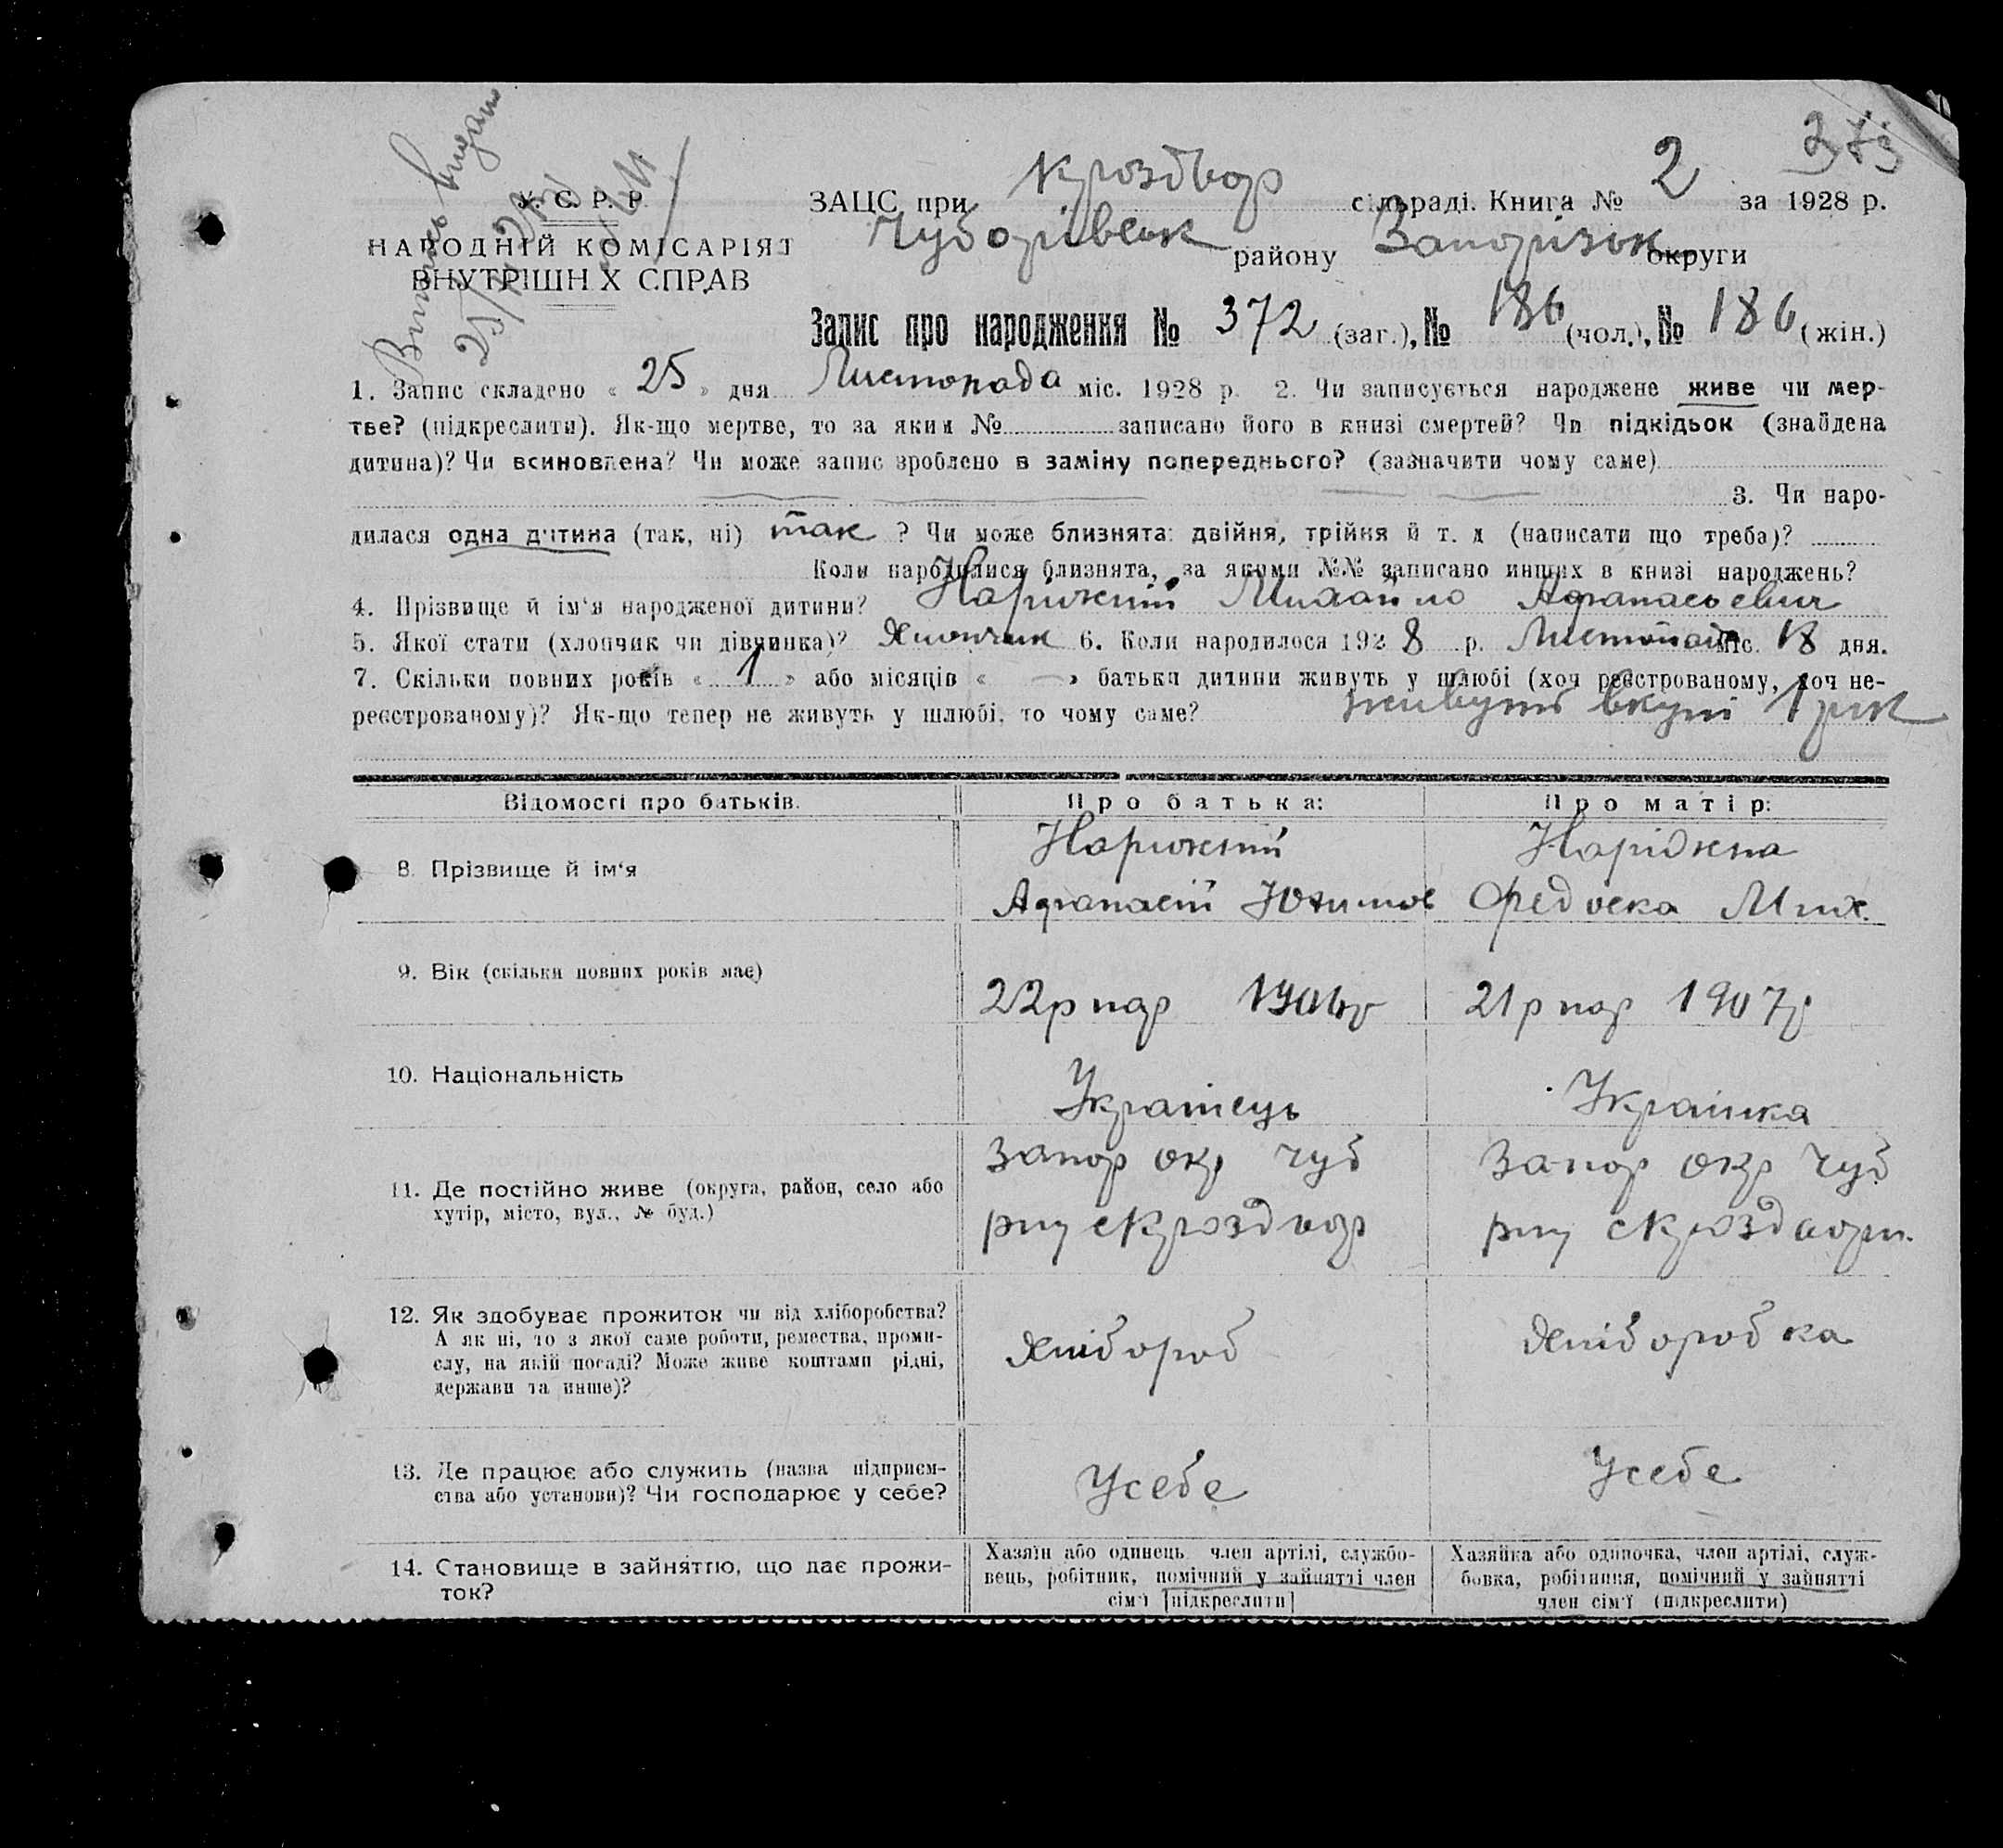 Витяг видан
373
У. С. Р. Р.
НАРОДНІЙ КОМІСАРІЯТ
ВНУТРІШН Х СПРАВ
ЗАЦС при Кроздвор сільраді. Книга № 2 за 1928 р.
Чубарівськ району Запорізьк округи
Запис про народження № 372 (заг.), № 186 (чол.), № 186 (жін.)
1. Запис складено « 25 » дня Листопада міс. 1928 р. 2. Чи записується народжене живе чи мер-
тве? (підкреслити). Як-що мертве, то за яким № записано його в книзі смертей? Чи підкідьок (знайдена
дитина)? Чи всиновлена? Чи може запис зроблено в заміну попереднього? (зазначити чому саме)
3. Чи наро-
дилася одна дитина (так, ні) так ? Чи може близнята: двійня, трійня й т. д (написати що треба)?
Коли народилися близнята, за якими №№ записано инших в книзі народжень?
4. Прізвище й ім'я народженої дитини? Нарижний Михайло Афанасьевич
5. Якої стати (хлопчик чи дівчинка)? Хлопчик 6. Коли народилося 192 8 р. Листопада міс. 18 дня.
7. Скільки повних років « 1 » або місяців « — » батьки дитини живуть у шлюбі (хоч реєстрованому, хоч не-
реєстрованому)? Як-що тепер не живуть у шлюбі, то чому саме? живуть вкупі 1 рік
Відомості про батьків. Про батька: Про матір:
8. Прізвище й ім'я
Нарижний
Афанасій Юхимов
Наріжна
Федоска Мих.
9. Вік (скільки повних років має) 22р нар 1906р 21р нар 1907р
10. Національність Українець Українка
11. Де постійно живе (округа, район, село або
хутір, місто, вул., № буд.)
Запор окр Чуб
рну с Кроздвор
Запор окр Чуб
рну с Кроздвори.
12. Як здобуває прожиток чи від хліборобства?
А як ні, то з якої саме роботи, ремества, проми-
слу, на якій посаді? Може живе коштами рідні,
держави та инше)?
Хлібороб
Хліборобка
13. Де працює або служить (назва підприєм-
ства або установи)? Чи господарює у себе?
Усебе
Усебе
14. Становище в зайняттю, що дає прожи-
ток?
Хазяїн або одинець член артілі, службо-
вець, робітник, помічний у зайнятті член
сім'ї [підкреслити]
Хазяйка або одиночка, член артілі, служ-
бовка, робітниця, помічний у зайнятті
член сім'ї (підкреслити)